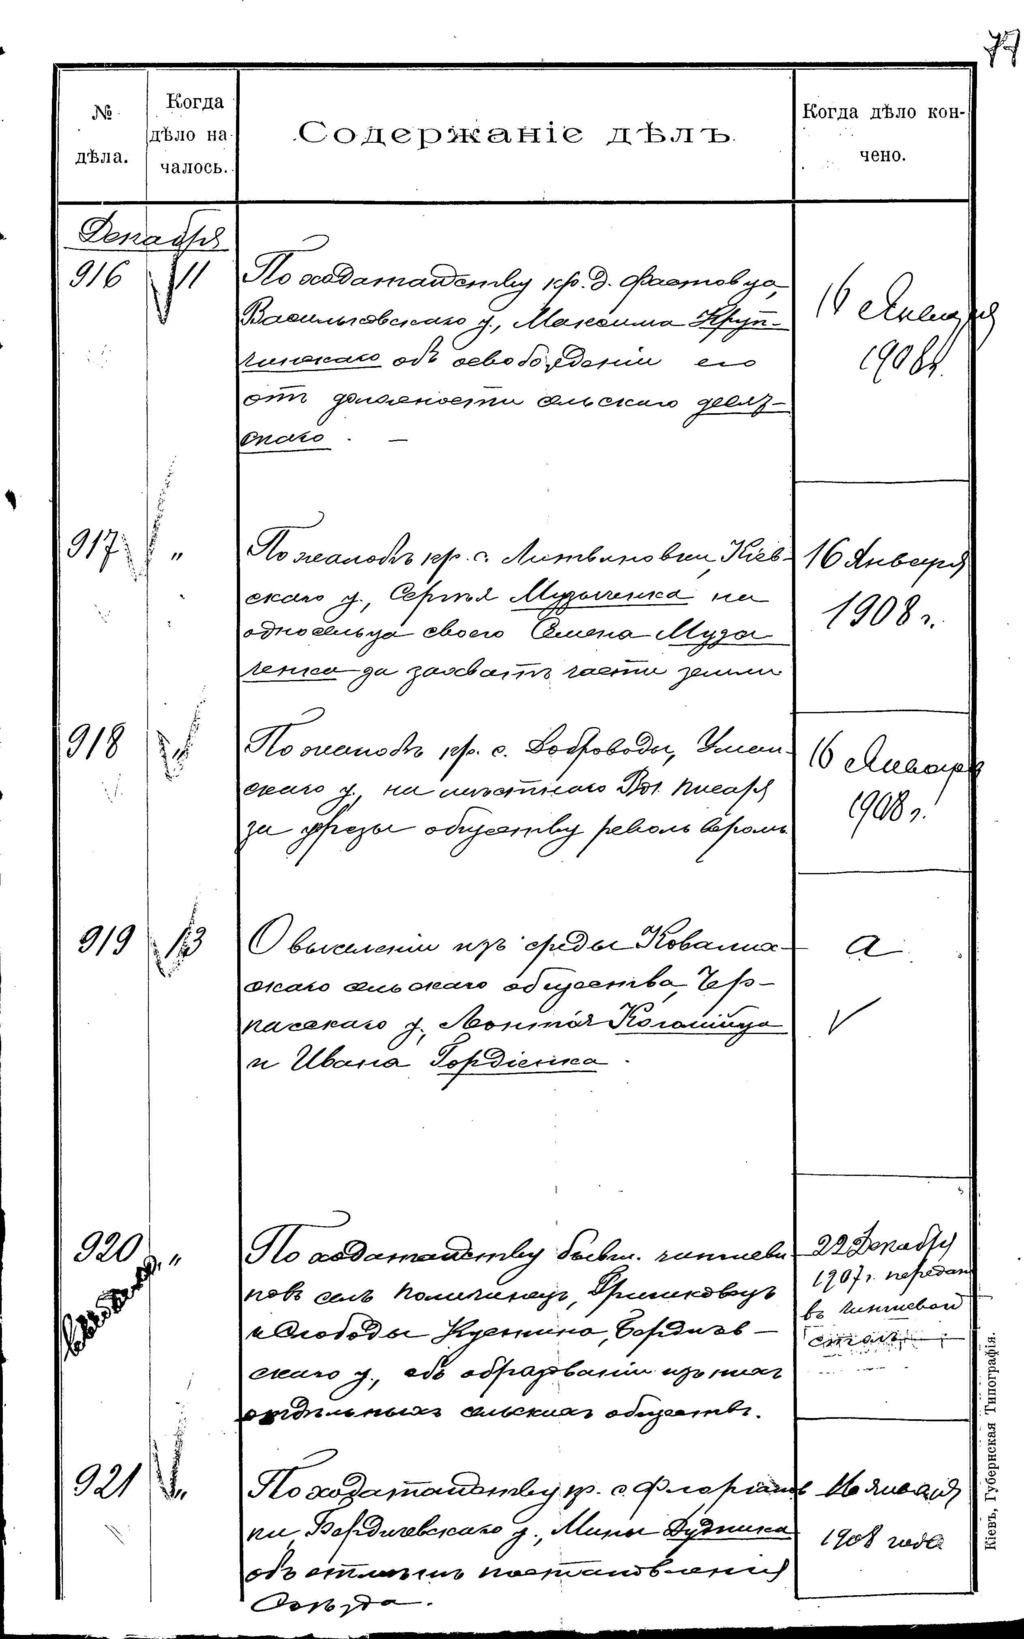 77
№ дѣла.
Когда дѣло началось.
Содержаніе дѣлъ.
Когда дѣло кончено.
Декабря
916
11
По ходатайству кр. д. Фастовца,
Васильковскаго у., Максима Круп-
чинскаго объ освобожденіи его
отъ должности сельскаго десят-
скаго. —
16 Января
1908 г.
917
"
По жалобѣ кр. с. Литвиновки, Кіев-
скаго у., Сергѣя Музыченка на
односельца своего Семена Музы-
ченка за захватъ части земли
16 Января
1908 г.
918
"
По жалобѣ кр. с. Доброводы, Уман-
скаго у., на мѣстнаго Вол. писаря
за угрозы обществу револьверомъ
16 Января
1908 г.
919
13
О выселеніи изъ среды
скаго сельскаго общества, Чер-
касскаго у., Леонтія
и Ивана Гордіенка.
а
920
"
По ходатайству бывш. чиншеви-
ковъ селъ Поличинецъ, Гришковецъ
и Слободы Кустина, Бердичев-
скаго у., объ образованіи изъ нихъ
отдѣльныхъ сельскихъ обществъ.
22 Декабря
1907 г. передан
въ чиншевой
столъ
921
"
По ходатайству кр. с. Флоріанов-
ки, Бердичевскаго у., Мины Дудника
объ отмѣнѣ постановленія
Съѣзда.
16 января
1908 года
Кіевъ, Губернская Типографія.